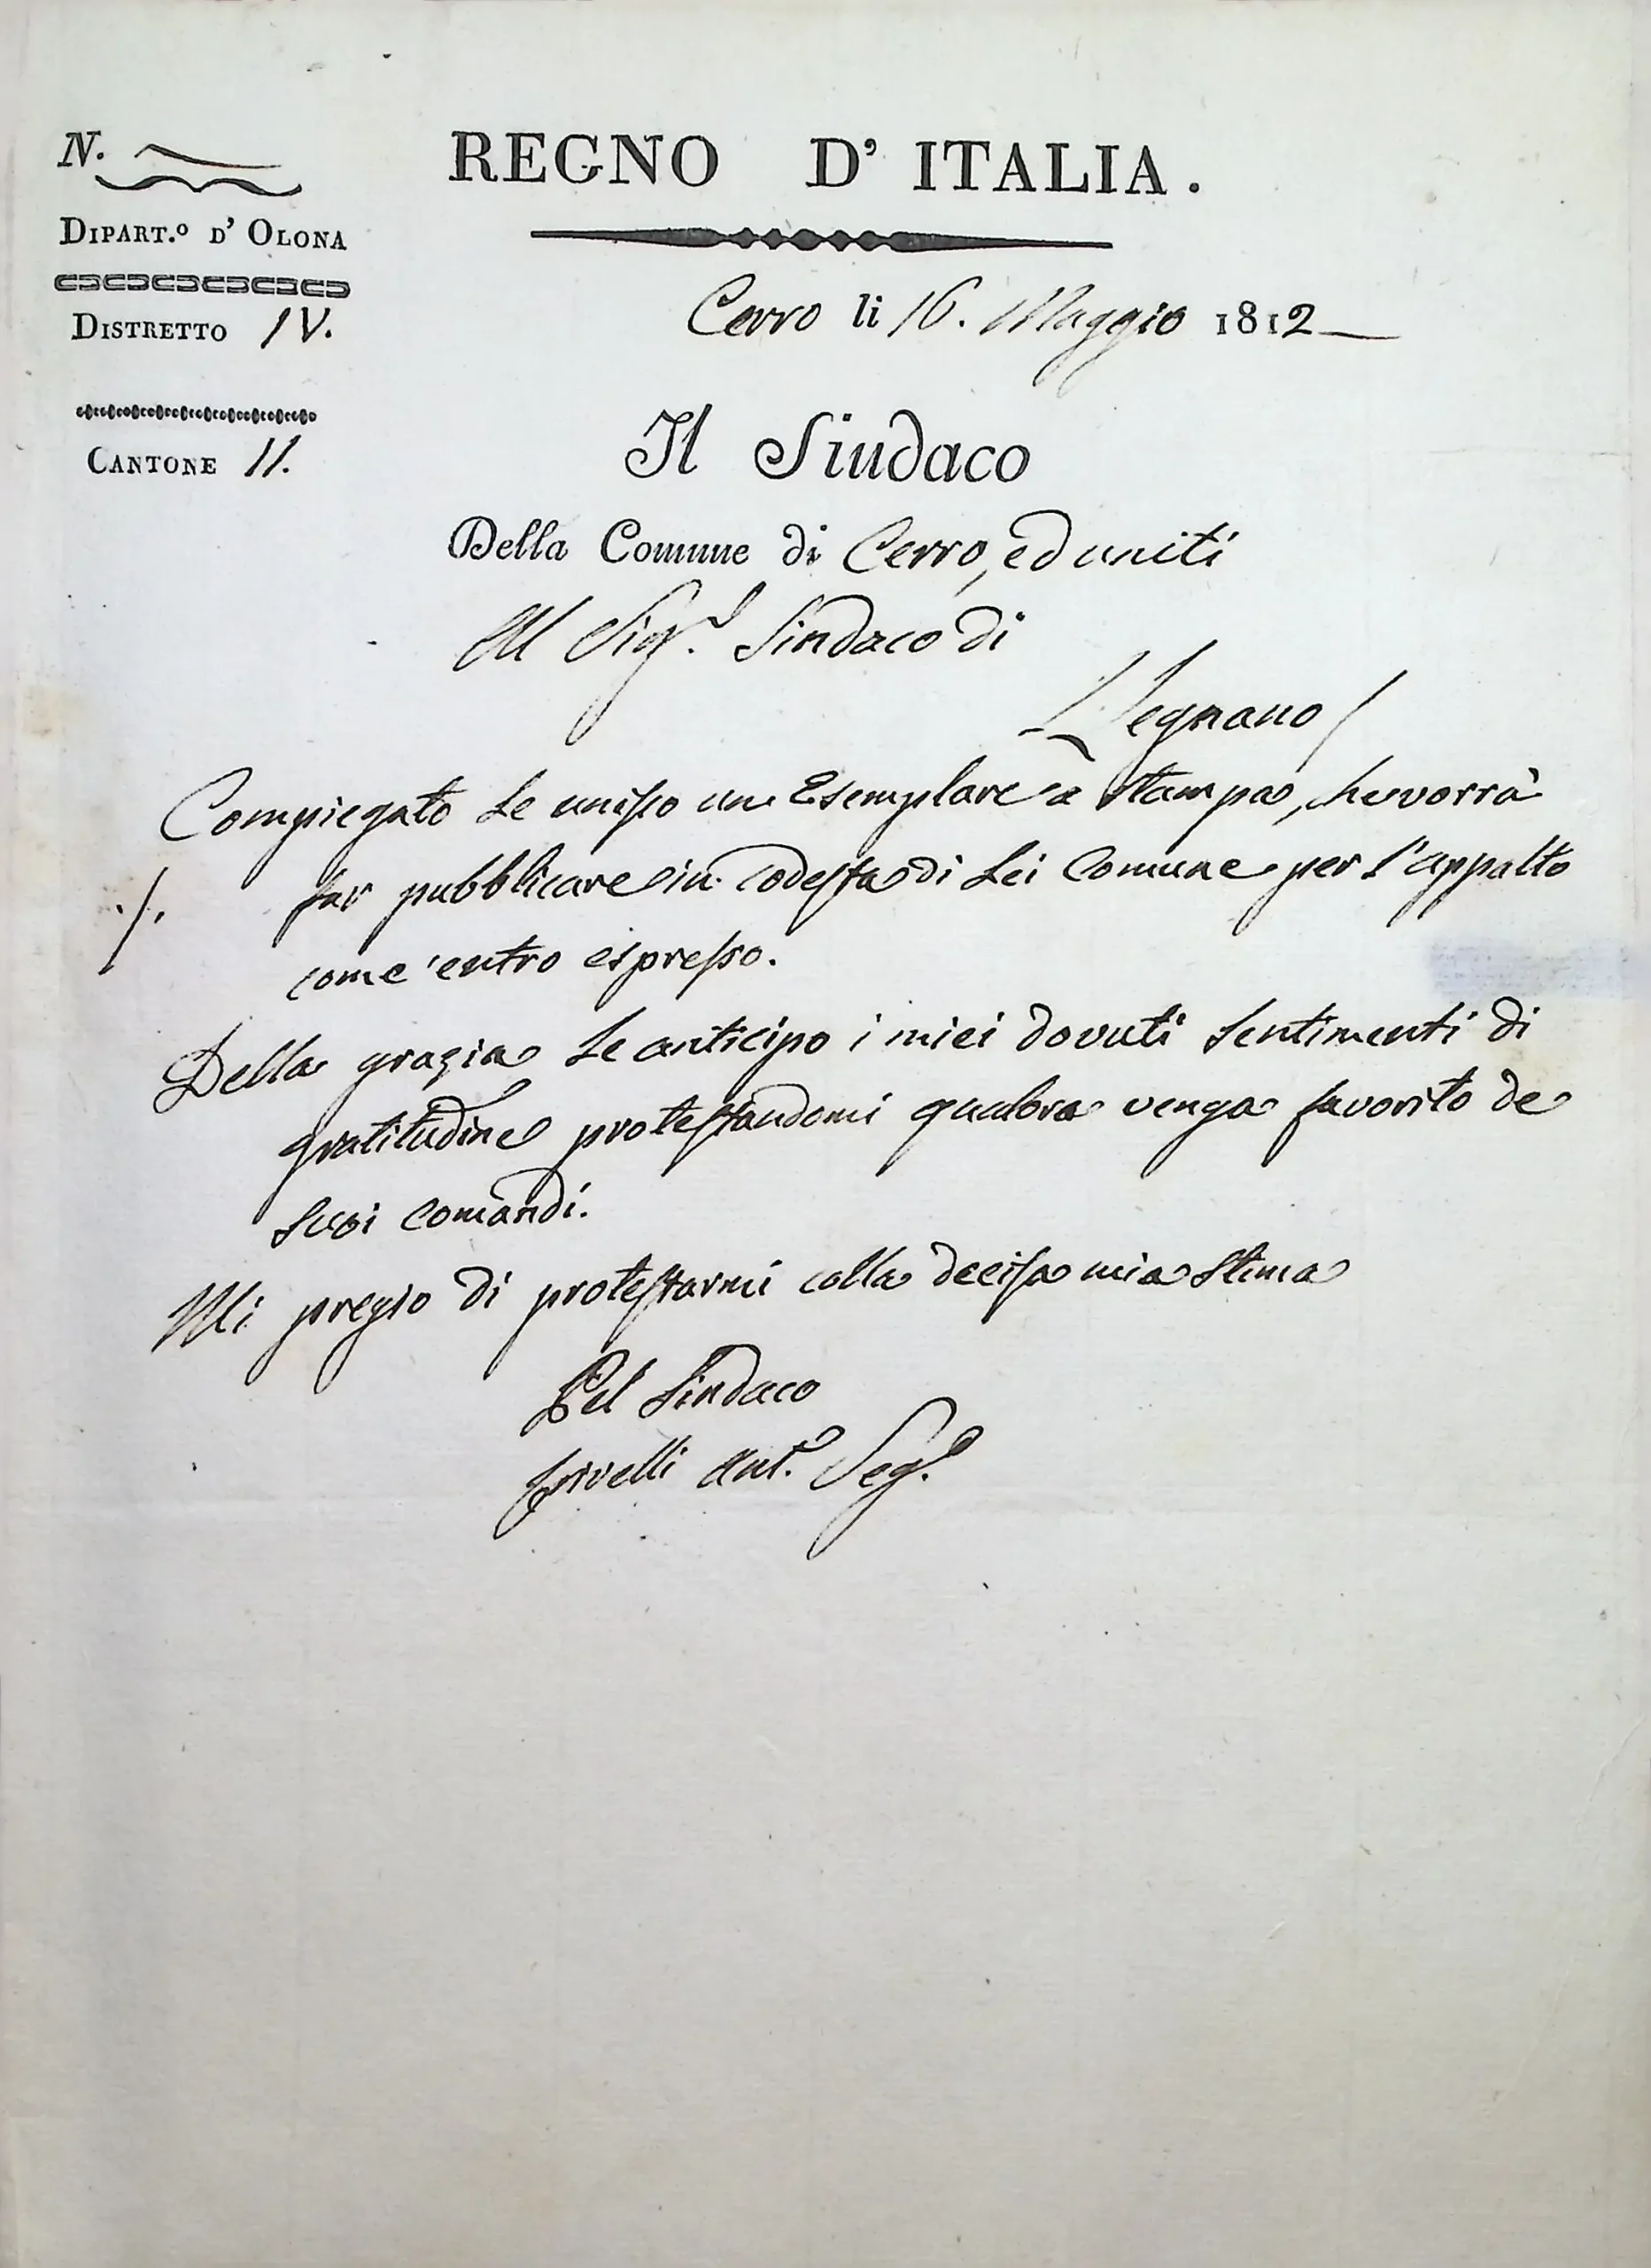 N.
REGNO D' ITALIA.
DIPART.º D' OLONA
Cerro li 16. Maggio 1812
DISTRETTO IV.
CANTONE II.
Il Sindaco
Della Comune di Cerro, ed uniti
Al Sig.r Sindaco di
Legnano
Compiegato Le unisco un Esemplare a Stampa, che vorrà
./. far pubblicare in codesta di Lei Comune per l'appalto
come entro espresso.
Della grazia Le anticipo i miei dovuti sentimenti di
gratitudine protestandomi qualora venga favorito de
suoi comandi.
Mi pregio di protestarmi colla decisa mia stima
Pel Sindaco
Crivelli Ant.º Seg.º